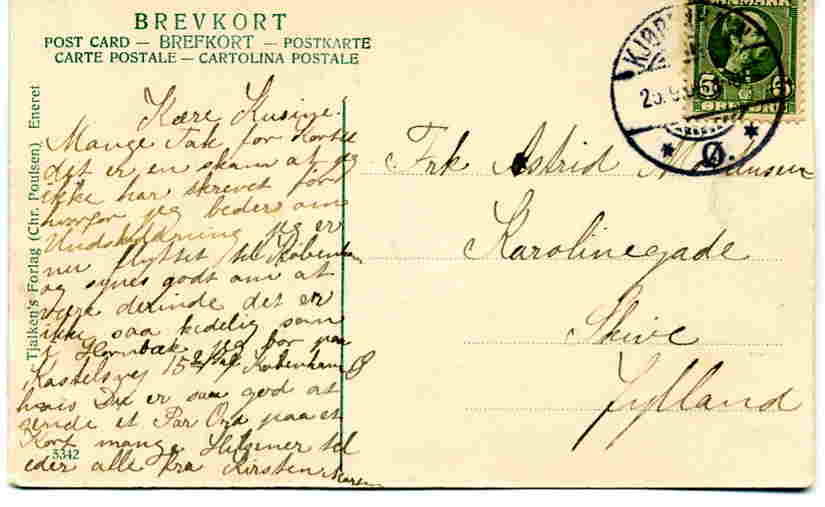 BREVKORT
POST CARD — BREFKORT — POSTKARTE
CARTE POSTALE — CARTOLINA POSTALE
Tjalken's Forlag (Chr. Poulsen) Eneret
Kære Kusine.
Mange Tak for Kortet
det er en skam at jeg
ikke har skrevet før
hvorfor jeg beder om
Undskyldning jeg er
nu flyttet til København
og synes godt om at
være derinde det er
ikke saa kedelig som
i Hornbæk jeg bor paa
Kastelsvej 15 København Ø
hvis Du er saa god at
sende et Par Ord paa et
Kort mange Hilsener til
eder alle fra Kirsten
5342
Frk Astrid
Karolinegade
Skive
Jylland
DANMARK
5 5
ØRE
Ø.